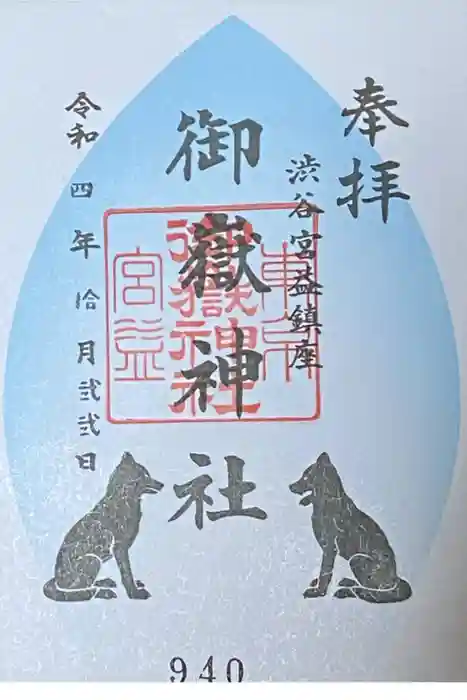 奉拝
渋谷宮益鎮座
御嶽神社
令和四年拾月弐弐日
東京
御嶽神社
宮益
940